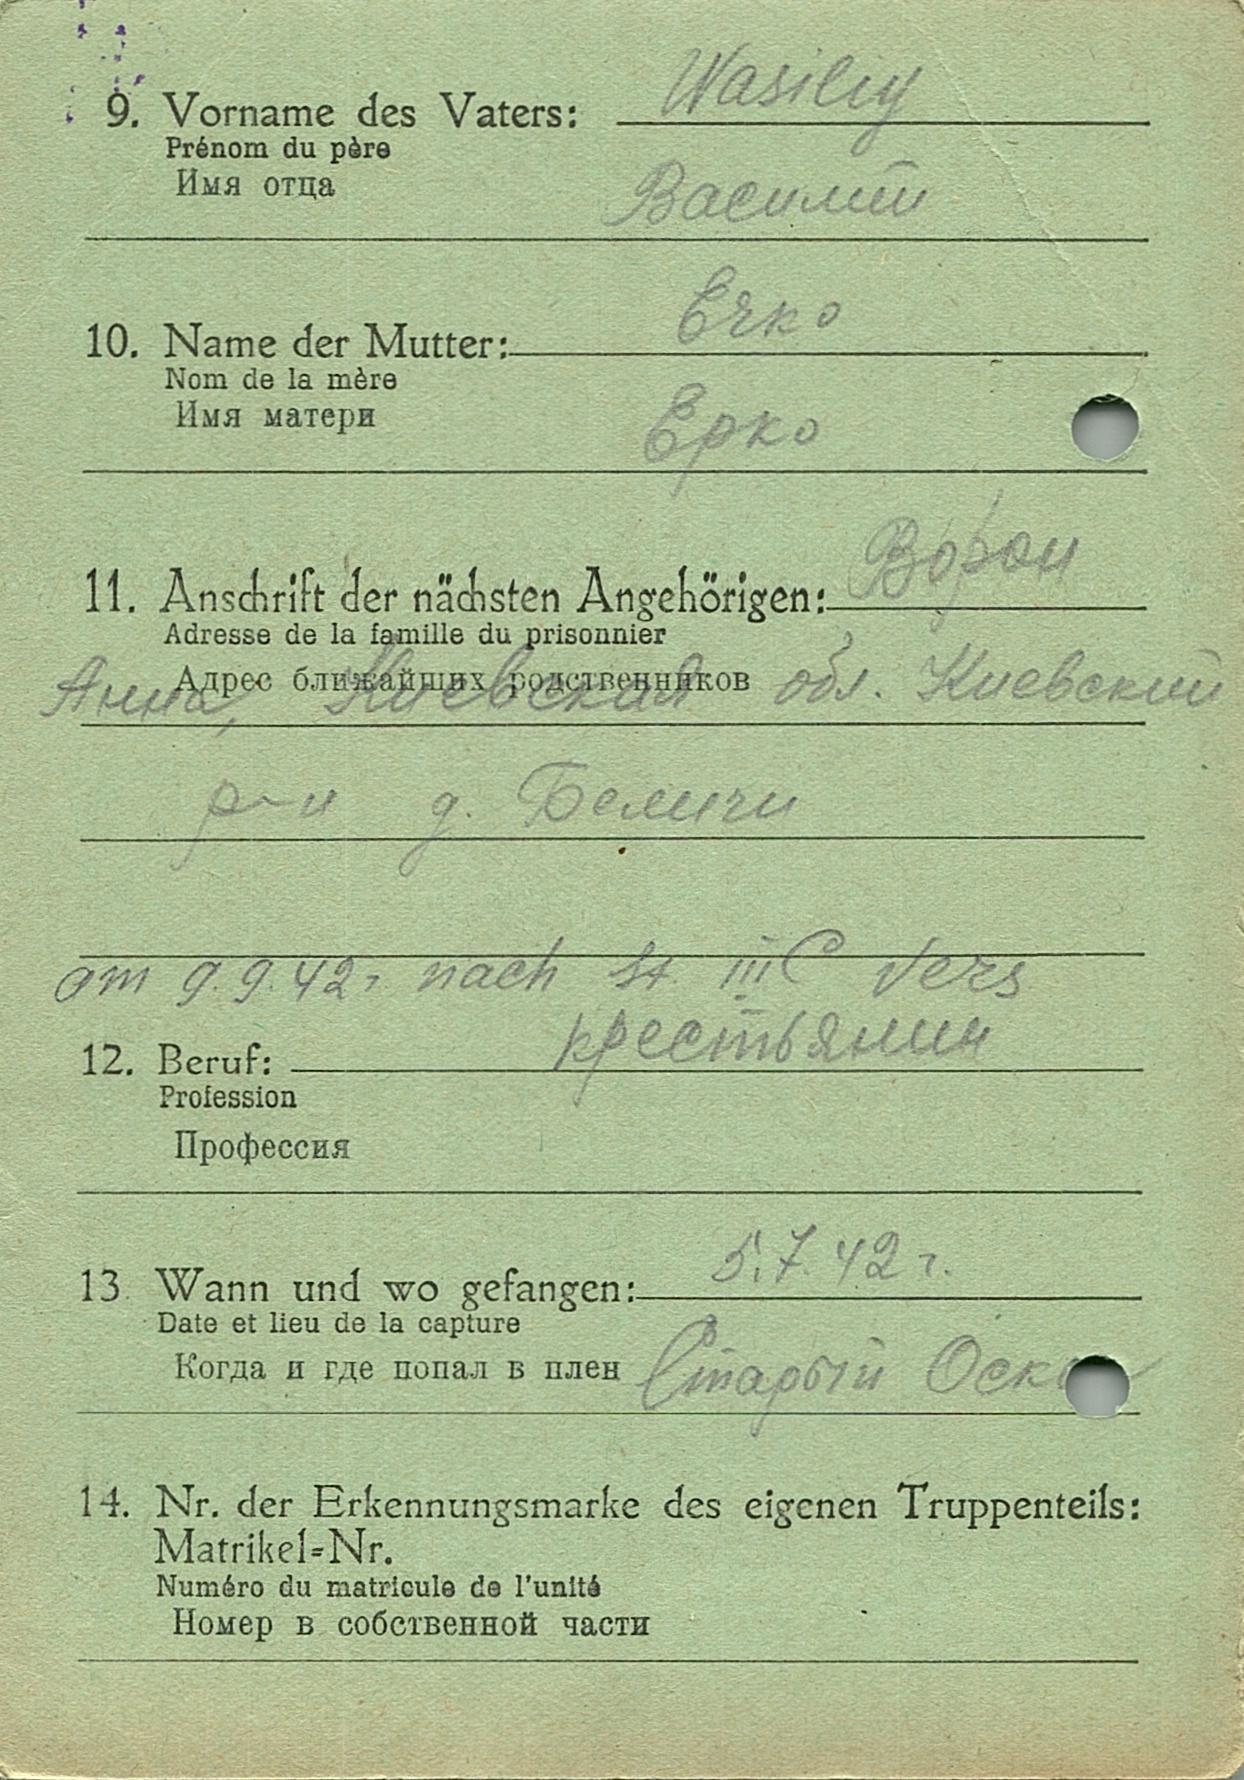 9. Vorname des Vaters: Wasiliy
Prénom du père
Имя отца Василий
10. Name der Mutter: Ерко
Nom de la mère
Имя матери Ерко
11. Anschrift der nächsten Angehörigen: Ворон
Adresse de la famille du prisonnier
Адрес ближайших родственников
Анна, Киевская обл. Киевский
р-н д. Беличи
am 9.9.42г nach St. III C vers
крестьянин
12. Beruf:
Profession
Профессия
13. Wann und wo gefangen: 5.7.42г.
Date et lieu de la capture
Когда и где попал в плен Старый
14. Nr. der Erkennungsmarke des eigenen Truppenteils:
Matrikel=Nr.
Numéro du matricule de l'unité
Номер в собственной части